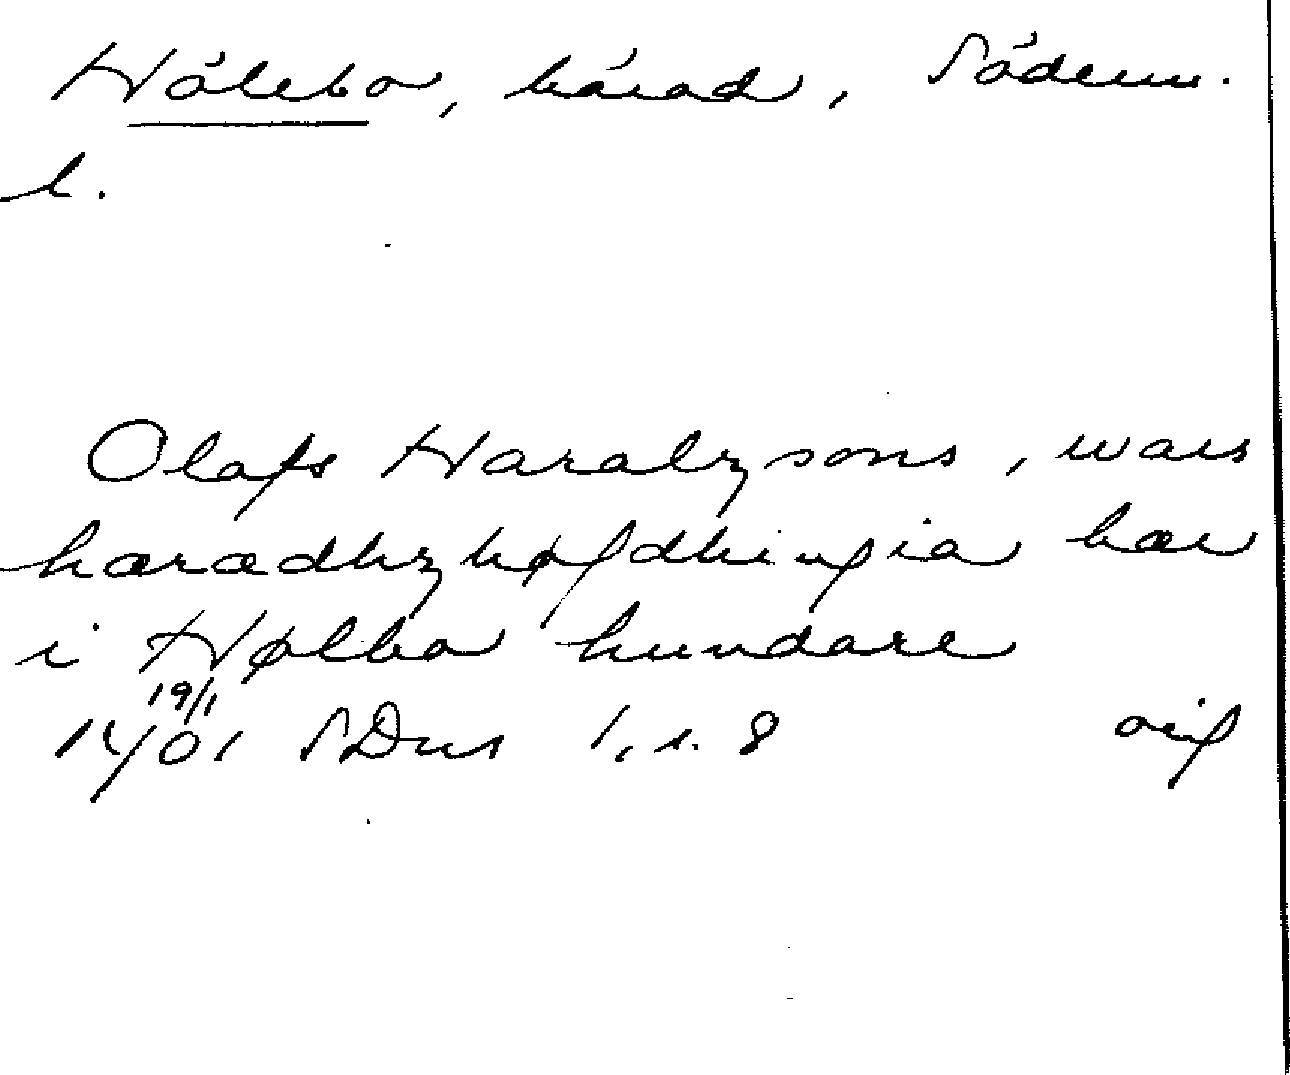 Hölebo, härad, Söderm.
l.
Olafs Haralzsons, wars
hæradhzhøfdhingia hær
i Hølbo hundare
19/1
1401 SDns 1, s. 8 orig